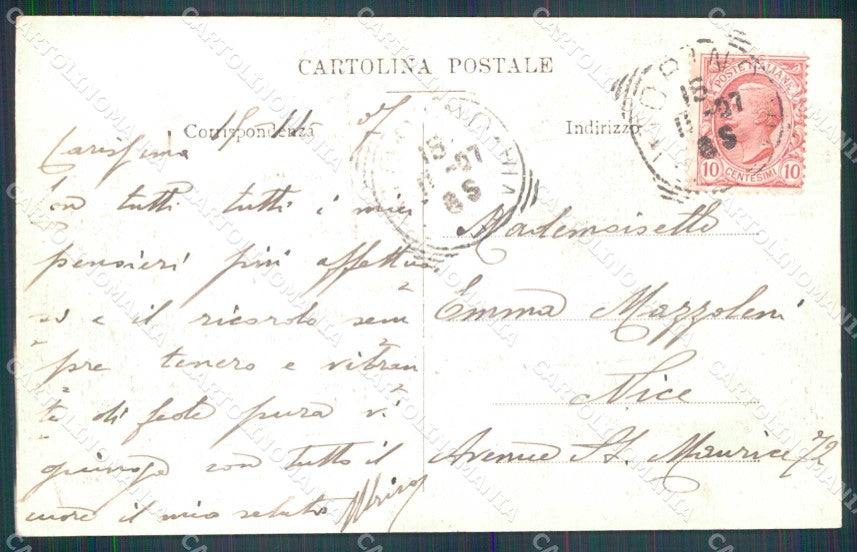 CARTOLINA POSTALE
Corrispondenza
Indirizzo
POSTE ITALIANE
10 CENTESIMI 10
15
11-07
8S
15
11-07
8S
15 11 07
Carissima
Con tutti tutti i miei
pensieri più affettuo
si e il ricordo sem
pre tenero e vibran
te di fede pura vi
giunga con tutto il
cuore il mio saluto
Mademoiselle
Emma Mazzoleni
Nice
Avenue St. Maurice 72
CARTOLINOMANIA